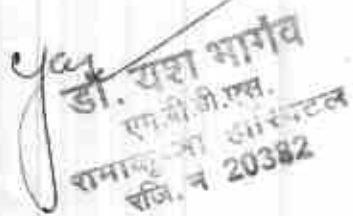 Yas
डॉ. यश भार्गव
एम.बी.बी.एस.
हास्पिटल
रजि. न 20382